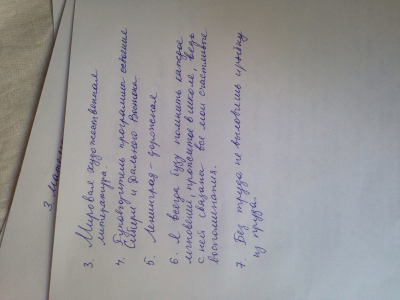 3. Мировая художественная
литература.
4. Руководитель программы освоение
Сибири и Дальнего Востока
5. Ленинград - дорожная
6. Я всегда буду помнить каждое
мгновений, прожитое в школе, ведь
с ней связаны все мои счастливые
воспоминания.
7. Без труда не выловишь и рыбку
из пруда.